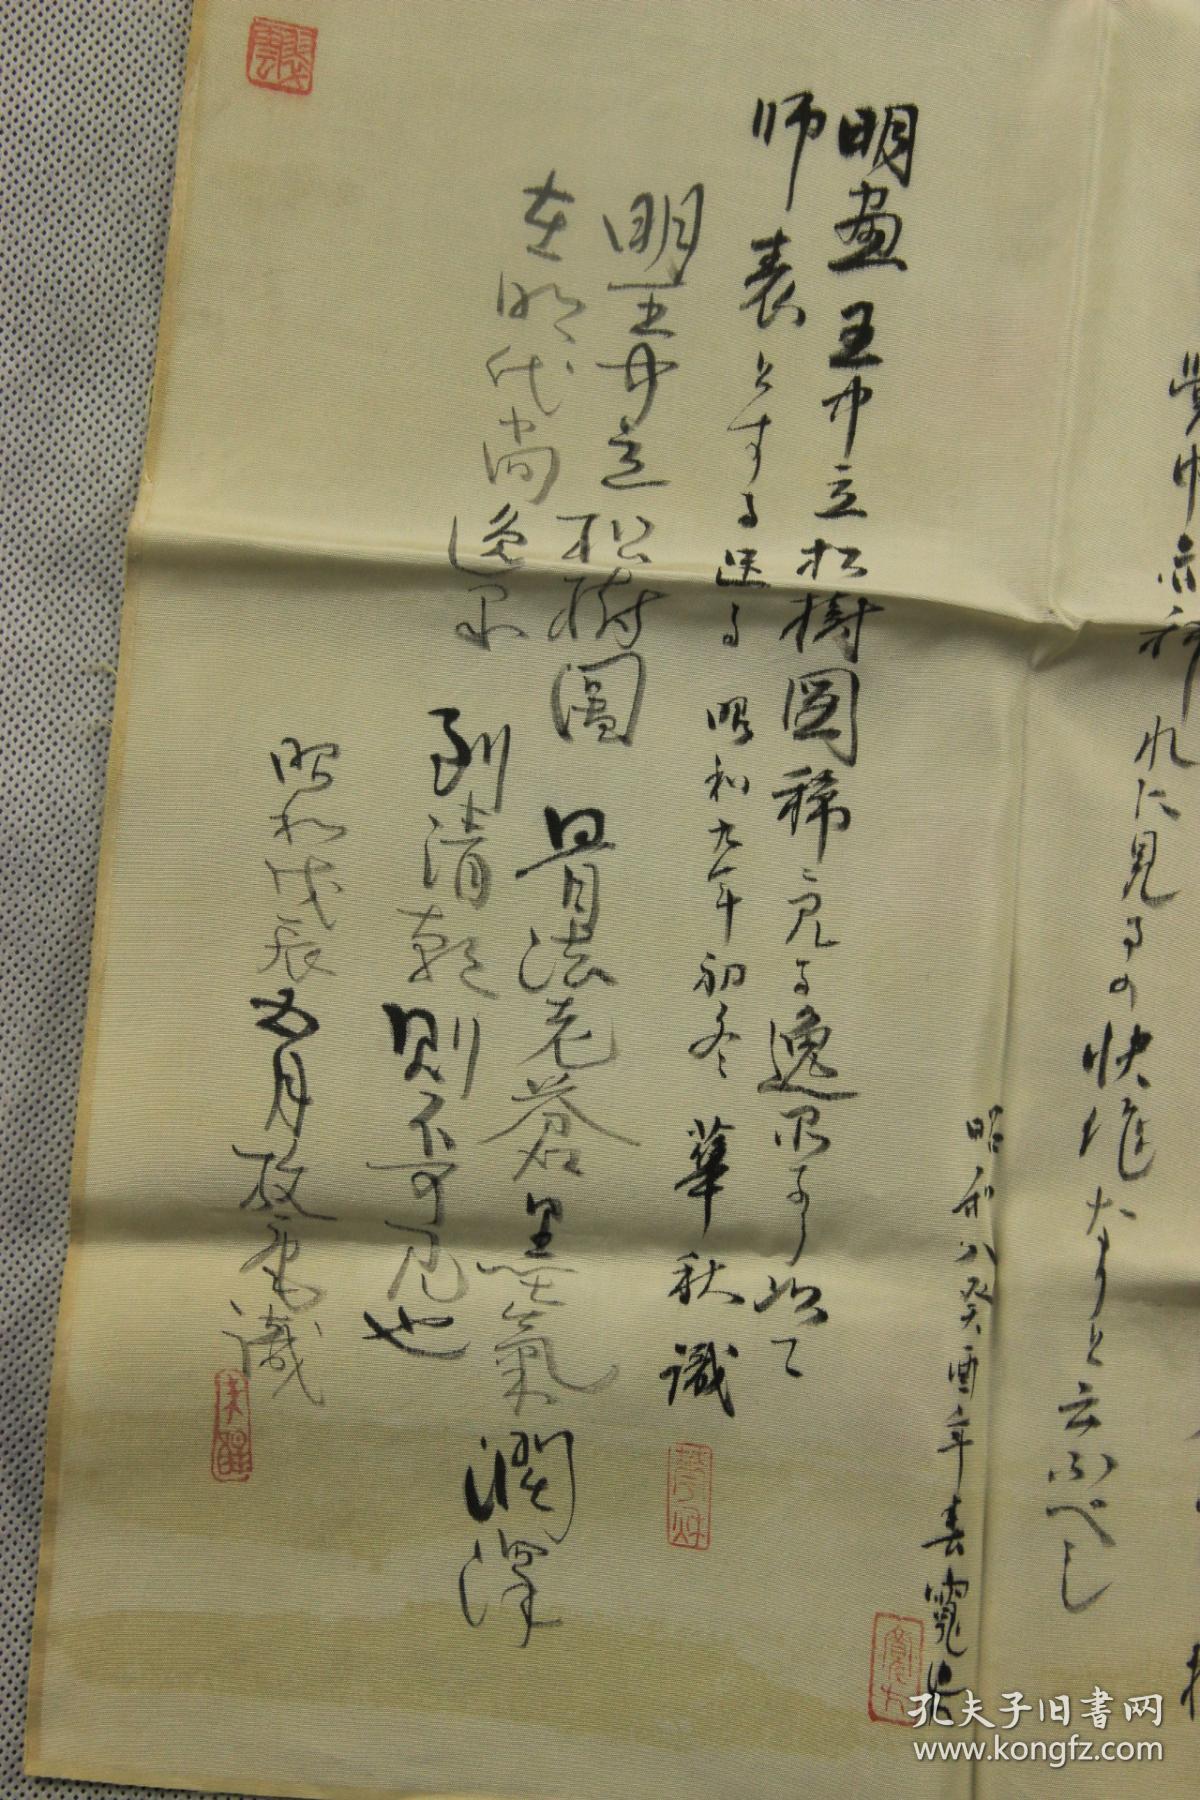 覚巾亦稀
れに見るの快作なりと云ふべし
昭和八癸酉年春
明画王中立松樹図稀に見る逸品なり以て
師表とするに足る 昭和九年初冬 華秋識
明王中立松樹圖 骨法老蒼墨氣潤澤
在明代尚逸品 到清朝則不可見也
昭和戊辰五月 識
華秋
孔夫子旧书网
www.kongfz.com